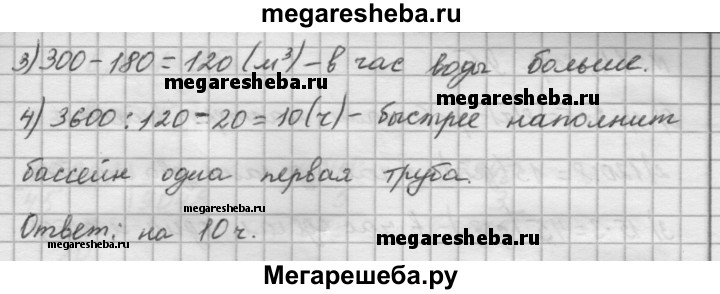 megaresheba.ru
3) 300 - 180 = 120 (м³) - в час воды больше.
megaresheba.ru megaresheba.ru
4) 3600 : 120 - 20 = 10 (ч) - быстрее наполнит
бассейн одна первая труба.
megaresheba.ru
Ответ: на 10 ч.
megaresheba.ru
Мегарешеба.ру